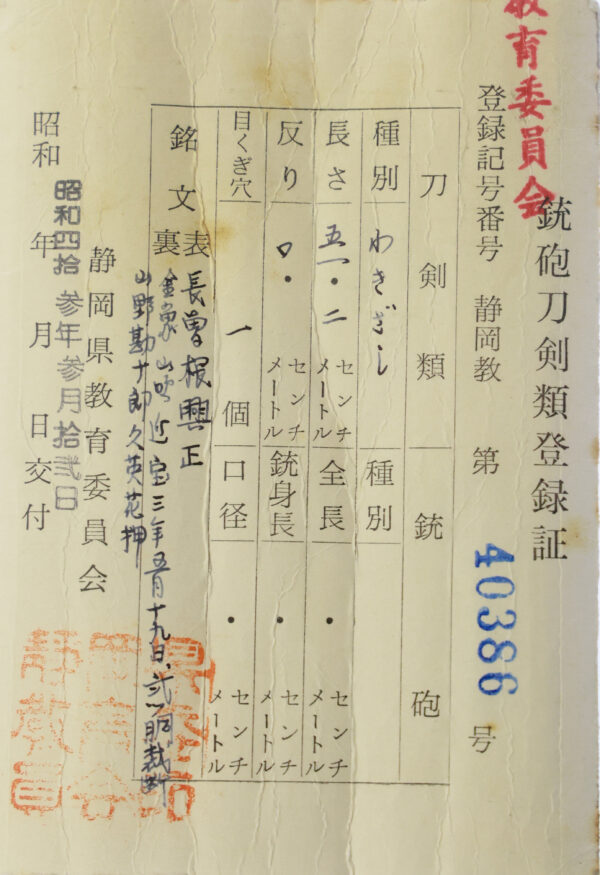 教育委員会
銃砲刀剣類登録証
登録記号番号 静岡教 第 40386 号
刀剣類 銃砲
種別 わきざし 種別
長さ 五一・二 センチメートル 全長 ・ センチメートル
反り 〇・ センチメートル 銃身長 ・ センチメートル
目くぎ穴 一 個 口径 ・ センチメートル
銘文 表 長曽根興正
裏 金象 山野 延宝三年五月十九日、弐ツ胴裁断
山野勘十郎久英花押
静岡県教育委員会
昭和 年 月 日交付
昭和四拾参年参月拾弐日